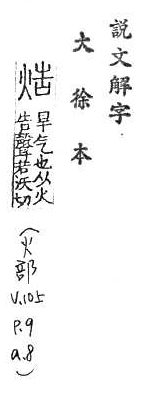 説文解字
大徐本
焅
旱气也从火
告聲苦沃切
(火部
V.105
P.9
a.8)